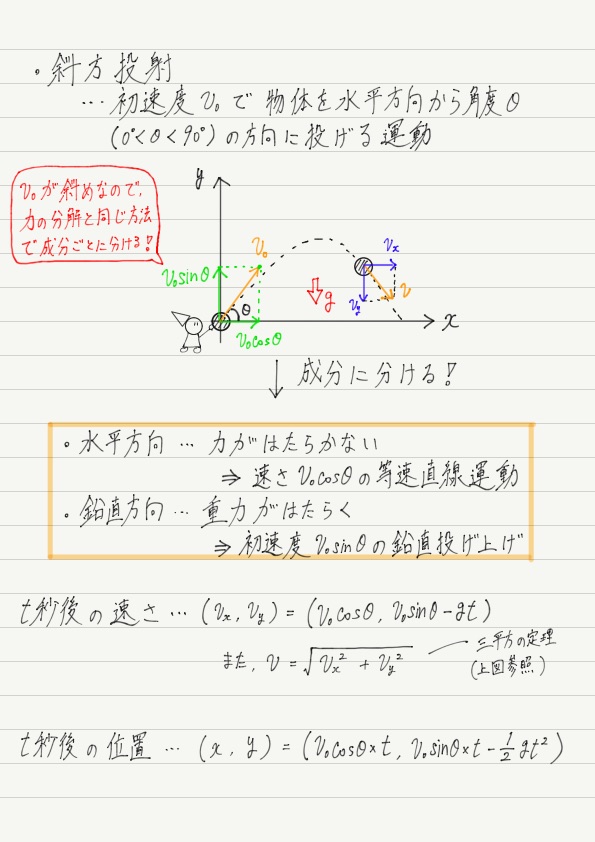 ・斜方投射
… 初速度 v₀ で 物体を水平方向から角度 θ
(0°<θ<90°) の方向に投げる運動
v₀ が斜めなので、
力の分解と同じ方法
で成分ごとに分ける!
y
v₀
v₀sinθ
θ
v₀cosθ
g
vx
vy
v
x
↓ 成分に分ける!
・水平方向 … 力がはたらかない
⇒ 速さ v₀cosθ の等速直線運動
・鉛直方向 … 重力がはたらく
⇒ 初速度 v₀sinθ の鉛直投げ上げ
t秒後の速さ … (vx, vy) = (v₀cosθ, v₀sinθ-gt)
また, v = √(vx² + vy²)
三平方の定理
(上図参照)
t秒後の位置 … (x, y) = (v₀cosθ×t, v₀sinθ×t-½gt²)